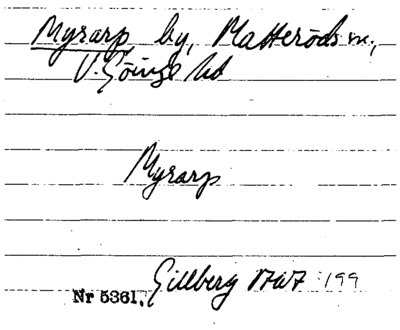 Myrarp by, Matteröds sn.,
V. Göinge hd
Myrarp
Gillberg 1767 :199
Nr 5361.